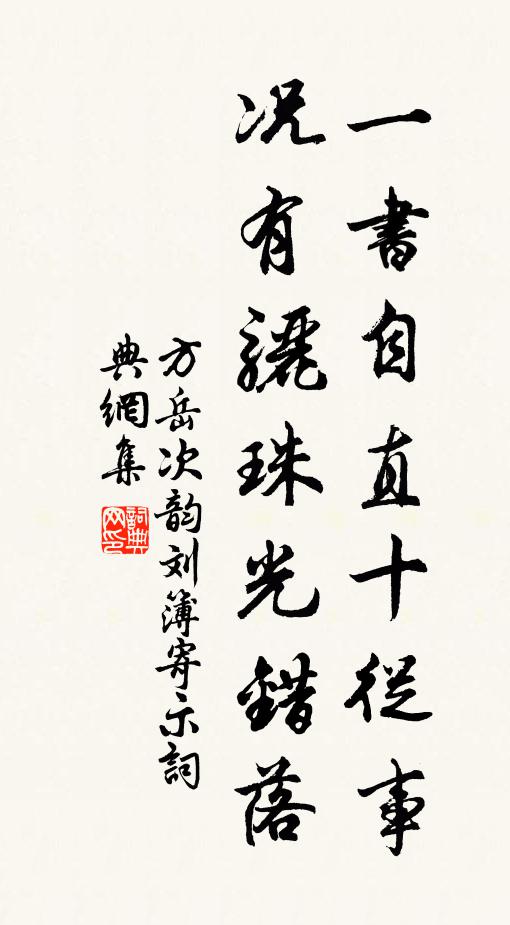 一書自直十從事
况有驪珠光錯落
方岳次韵刘簿寄示詞
典網集
詞典网印